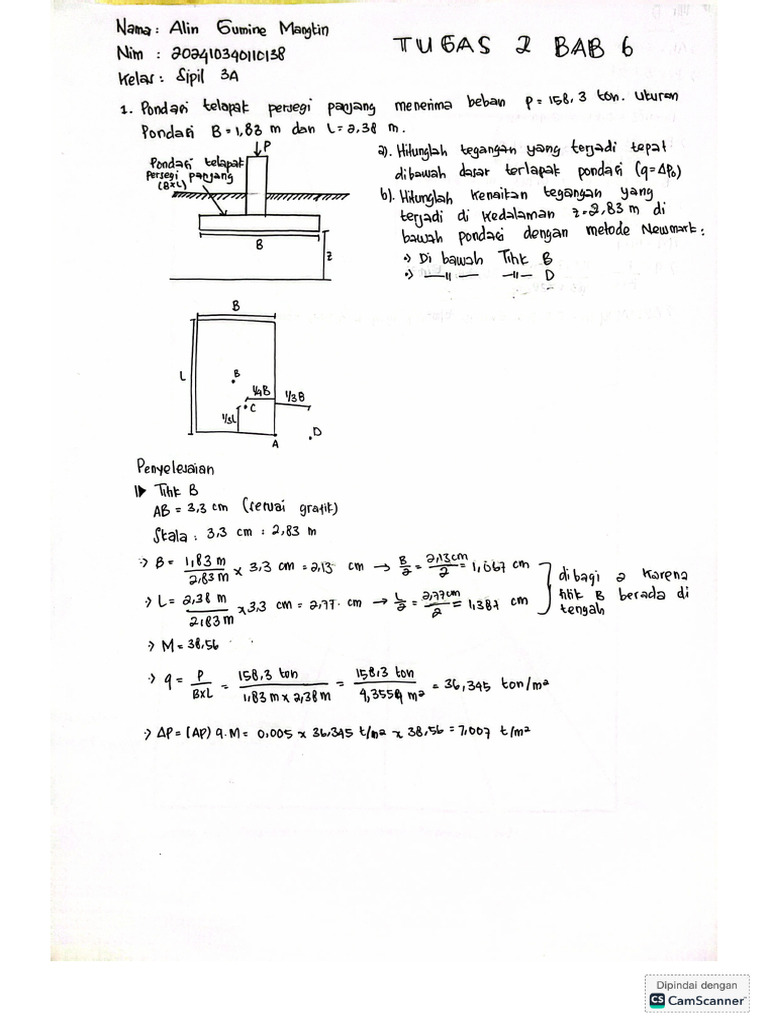 Nama : Alin Gumine Mangtin
Nim : 202410340110138
Kelas : Sipil 3A
TUGAS 2 BAB 6
1. Pondasi telapak persegi panjang menerima beban P = 158,3 ton. Ukuran
Pondasi B = 1,83 m dan L = 2,38 m.
P
Pondasi telapak
persegi panjang
(B×L)
B
z
a). Hitunglah tegangan yang terjadi tepat
dibawah dasar terlapak pondasi (q=ΔP₀)
b). Hitunglah kenaikan tegangan yang
terjadi di kedalaman z=2,83 m di
bawah pondasi dengan metode Newmark :
•) Di bawah Titik B
•) —〃— —〃— D
B
L
B
1/4B
1/3B
C
1/3L
D
A
Penyelesaian
1▸ Titik B
AB = 3,3 cm (sesuai grafik)
Skala : 3,3 cm : 2,83 m
•) B = 1,83 m / 2,83 m × 3,3 cm = 2,13 cm → B/2 = 2,13 cm / 2 = 1,067 cm
•) L = 2,38 m / 2,83 m × 3,3 cm = 2,77 cm → L/2 = 2,77 cm / 2 = 1,387 cm
dibagi 2 karena
titik B berada di
tengah
•) M = 38,56
•) q = P / B×L = 158,3 ton / 1,83 m × 2,38 m = 158,3 ton / 4,3554 m² = 36,345 ton/m²
•) ΔP = (AP) q.M = 0,005 × 36,345 t/m² × 38,56 = 7,007 t/m²
Dipindai dengan
CS CamScanner